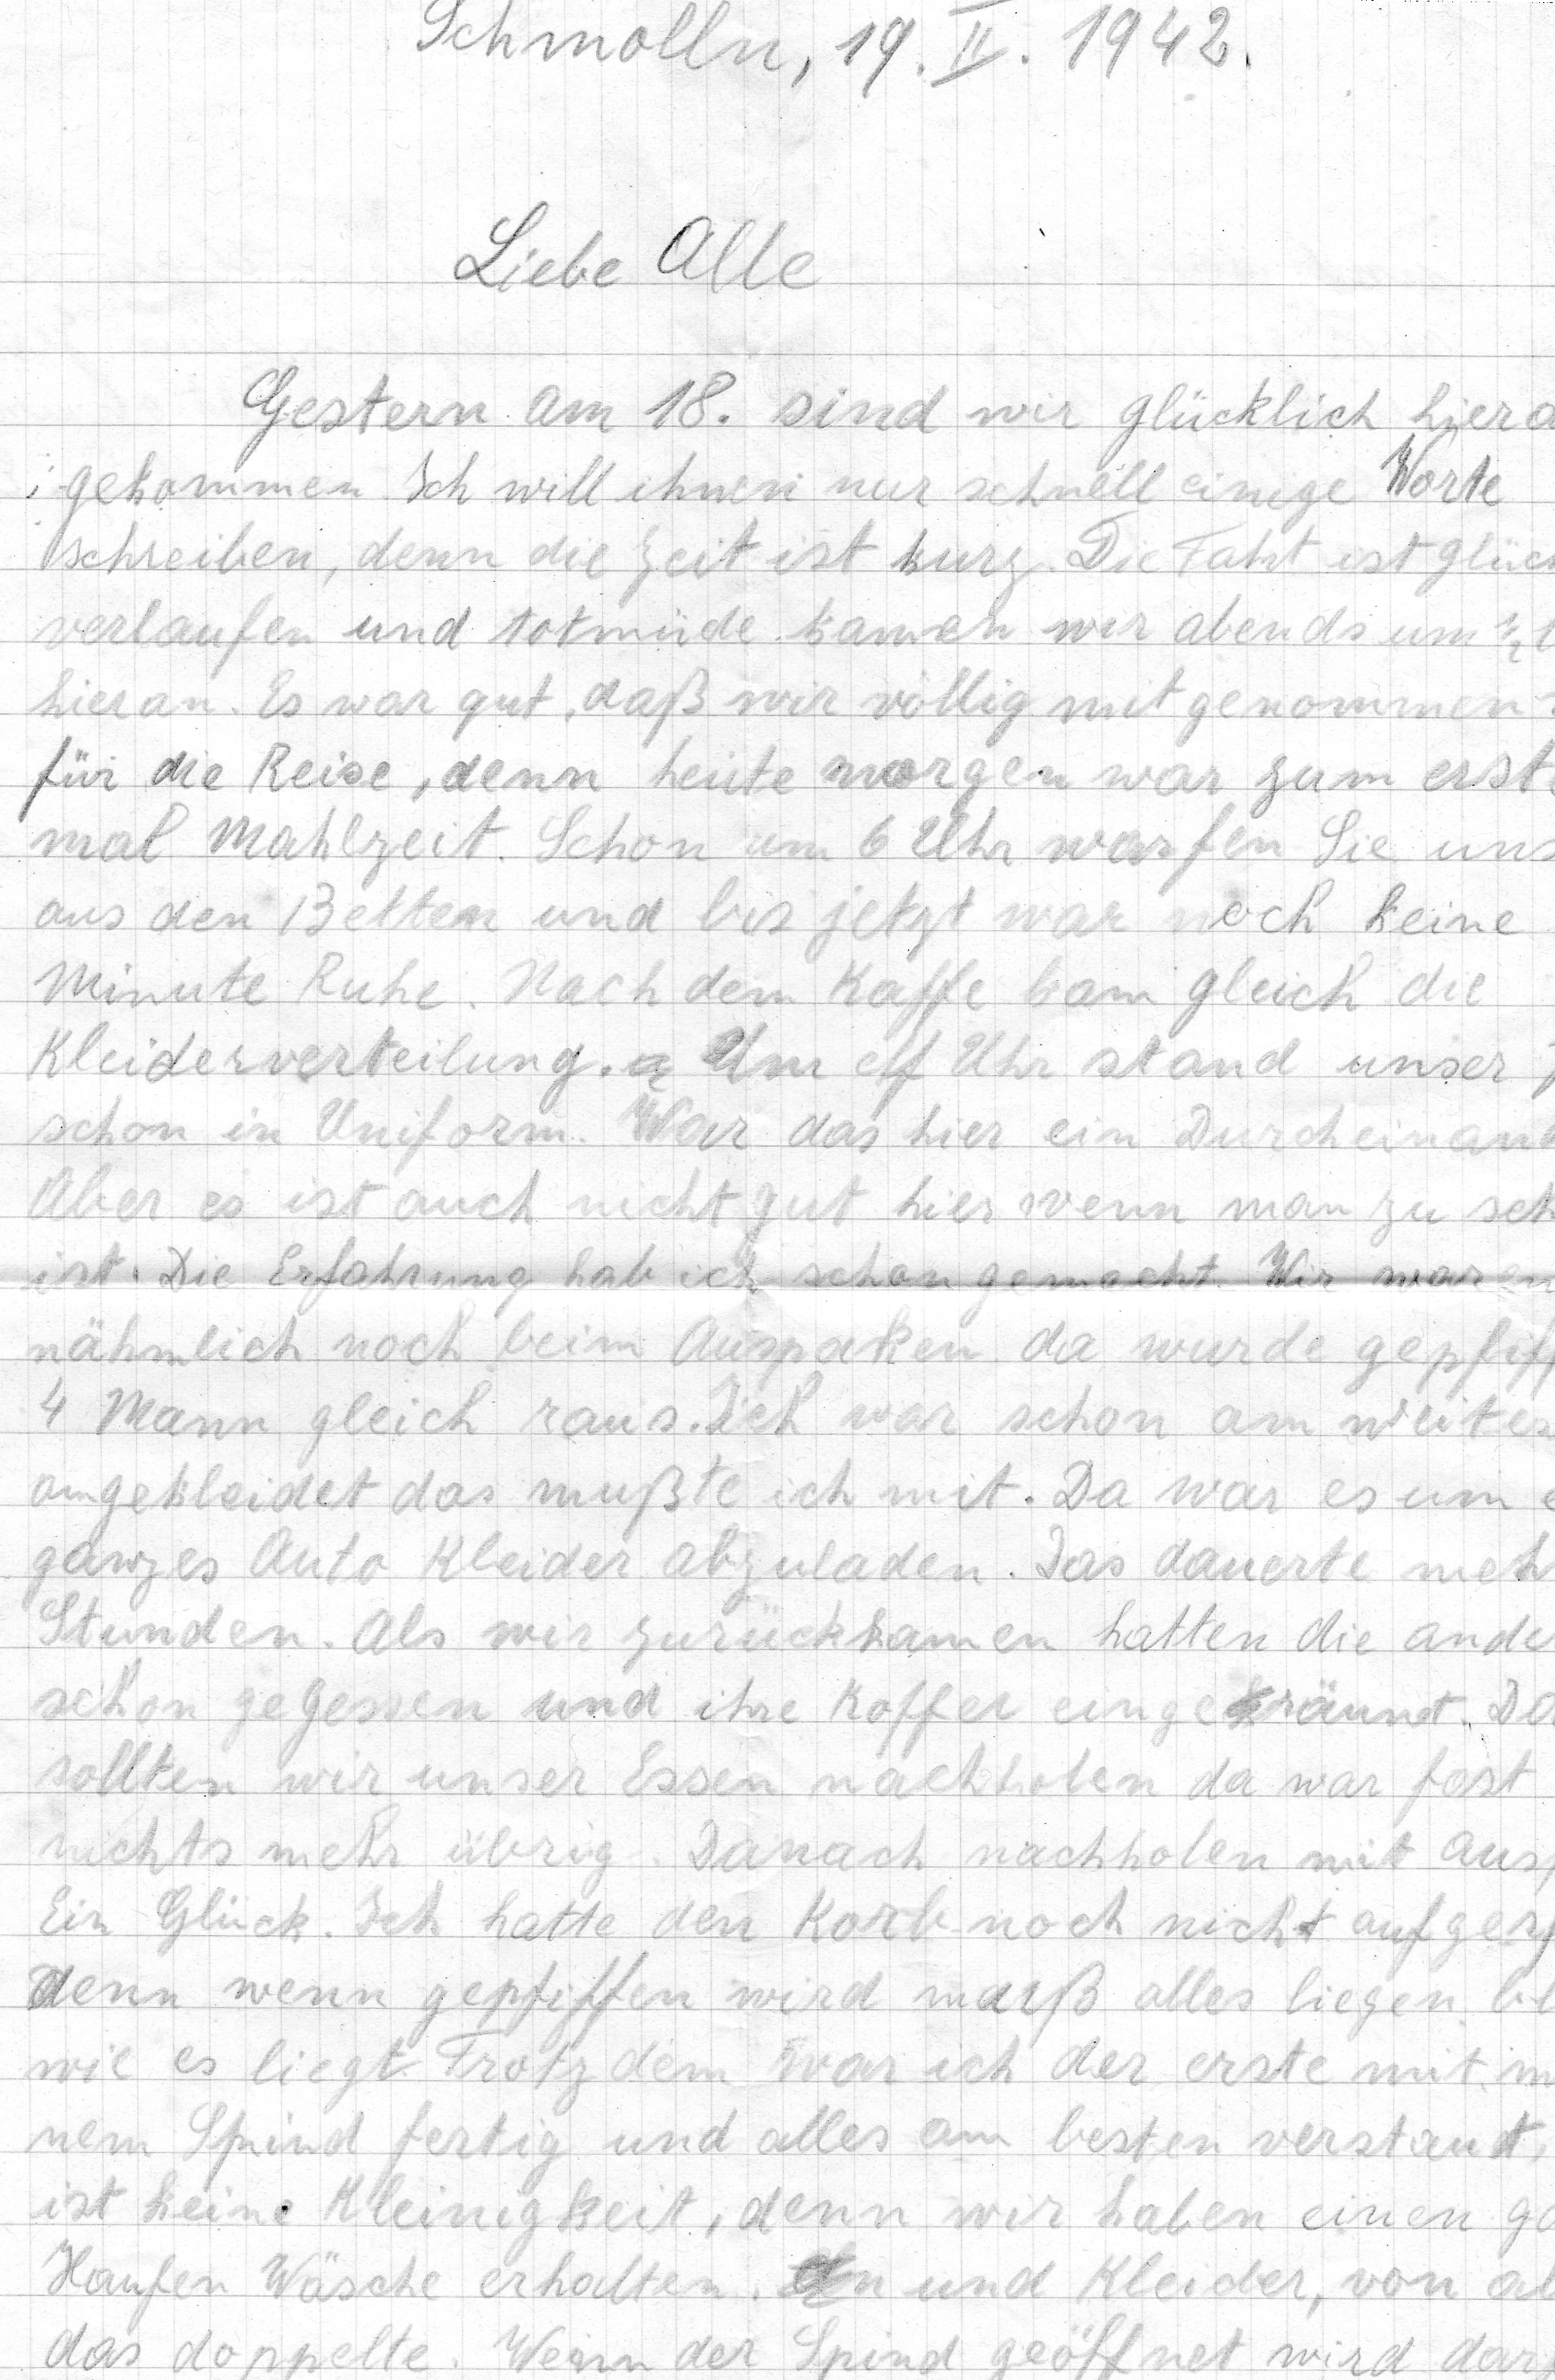 Schmolln, 19. II. 1942.
Liebe Alle
Gestern am 18. sind wir glücklich hier a
gekommen Ich will ihnen nur schnell einige Worte
schreiben, denn die Zeit ist kurz. Die Fahrt ist glück
verlaufen und totmüde kamen wir abends um 1/2
hier an. Es war gut, daß wir völlig mit genommen
für die Reise, denn heute morgen war zum erst
mal Mahlzeit. Schon um 6 Uhr warfen Sie uns
aus den Betten und bis jetzt war noch keine
Minute Ruhe. Nach dem Kaffe kam gleich die
Kleiderverteilung. Um elf Uhr stand unser
schon in Uniform. War das hier ein Durcheinand
Aber es ist auch nicht gut hier wenn man zu sch
ist. Die Erfahrung hab ich schon gemacht. Wir waren
nähmlich noch beim Auspaken da wurde gepfiff
4 Mann gleich raus. Ich war schon am weites
angekleidet das mußte ich mit. Da war es um e
ganzes Auto Kleider abzuladen. Das dauerte meh
Stunden. Als wir zurückkamen hatten die ande
schon gegessen und ihre Koffer eingeräumt. Da
sollten wir unser Essen nachholen da war fast
nichts mehr übrig. Danach nachholen mit Ausp
Ein Glück. Ich hatte den Korb noch nicht aufger
denn wenn gepfiffen wird muß alles liegen bl
wie es liegt. Trotzdem war ich der erste mit m
nem Spind fertig und alles am besten verstaut.
ist keine Kleinigkeit, denn wir haben einen ga
Haufen Wäsche erhalten. und Kleider, von al
das doppelte. Wenn der Spind geöffnet wird darf